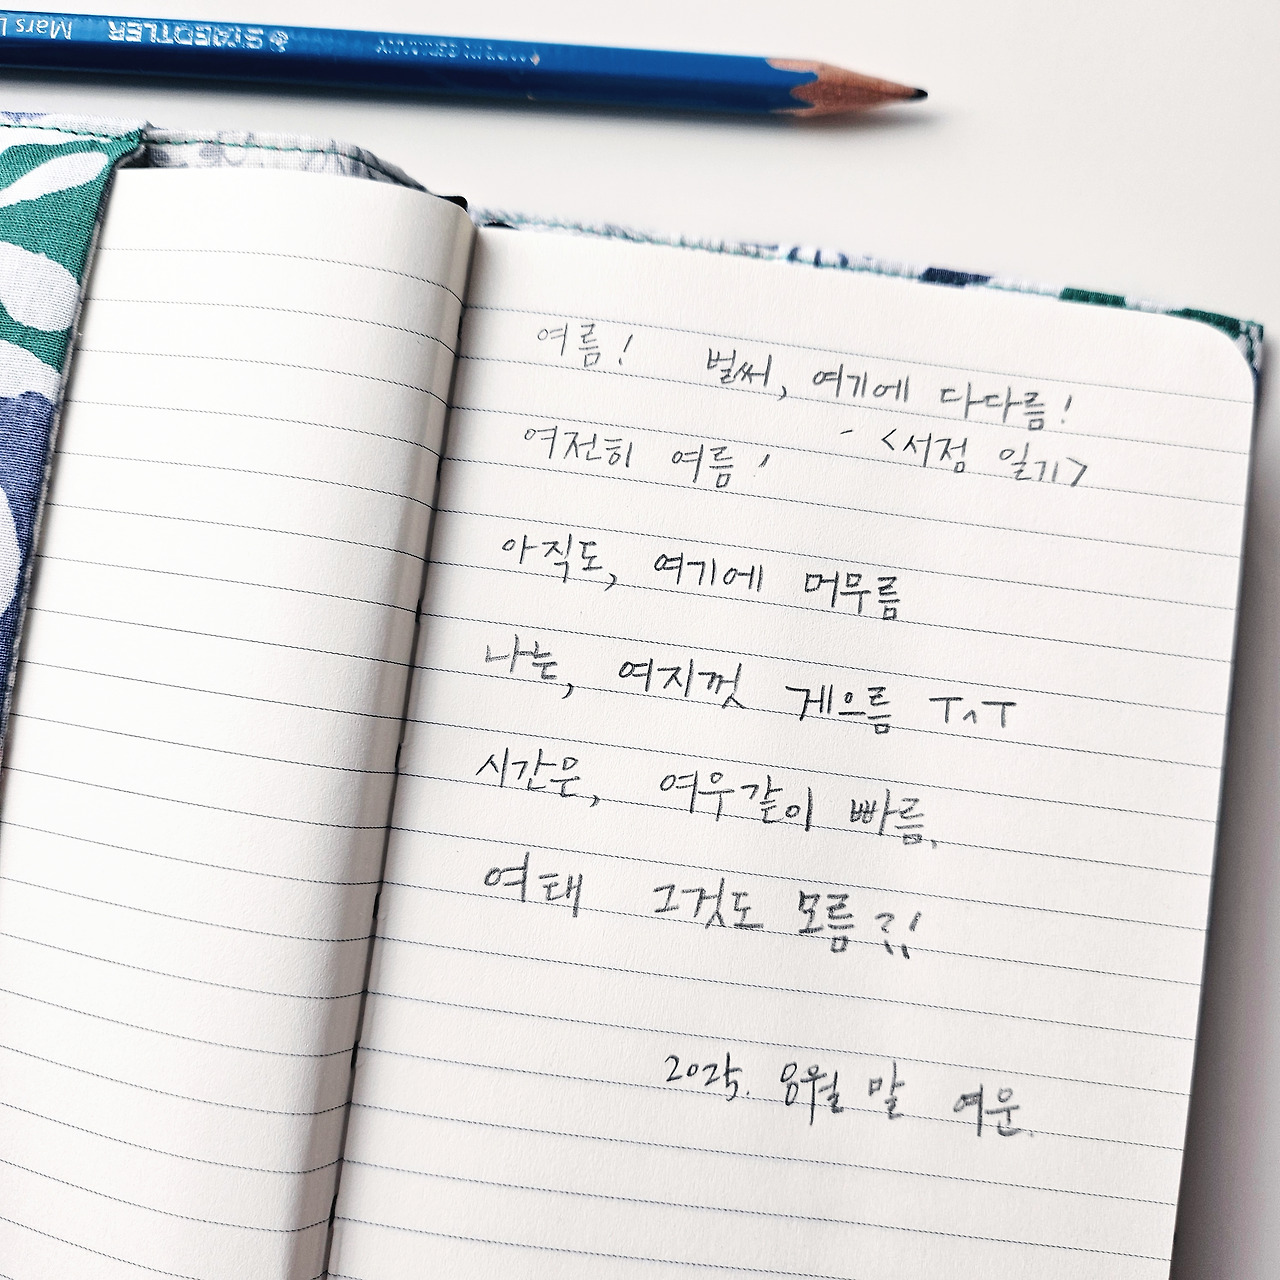 Mars L STAEDTLER MADE IN GERMANY
여름! 벌써, 여기에 다다름!
- <서점 일기>
여전히 여름!
아직도, 여기에 머무름
나는, 여지껏 게으름 ㅜㅅㅜ
시간은, 여우같이 빠름.
여태 그것도 모름?!
2025. 8월 말 여운.